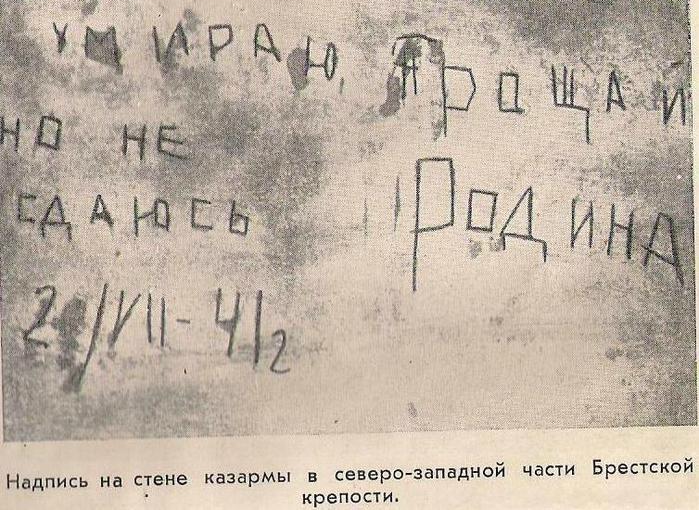 УМИРАЮ,
НО НЕ
СДАЮСЬ
ПРОЩАЙ
РОДИНА
/VII-41
Надпись на стене казармы в северо-западной части Брестской
крепости.